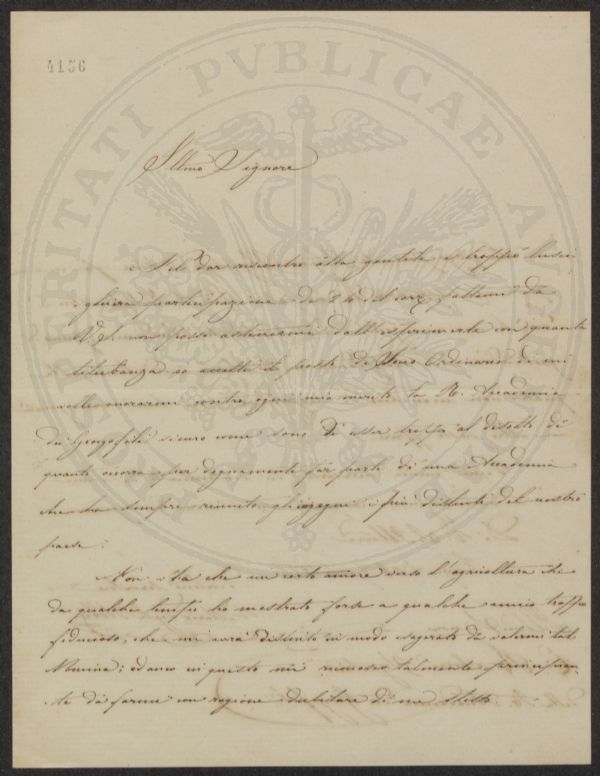 4156
PROSPERITATI PVBLICAE AVGENDAE
Illmo Signore
Nel dar riscontro alla gentile e troppo lusin-
ghiera partecipazione de 24 del corr. fattami da
V.S. non posso astenermi dall'esprimerle con quanta
titubanza io accetti il posto di Socio Ordinario di cui
volle onorarmi contro ogni mio merito la R. Accademia
dei Georgofili sicuro come sono di esser troppo al disotto di
quanto occorre per degnamente far parte di una Accademia
che ha sempre riunito gl'ingegni i più distinti del nostro
paese.
Non è che un certo amore verso l'agricoltura che
da qualche ho mostrato forse a qualche amico troppo
fiducioso, che mi avrà distinto in modo da tal
Nomina; ed anco in questo mi talmente principian-
te da farmi con ragione dubitare di me stesso